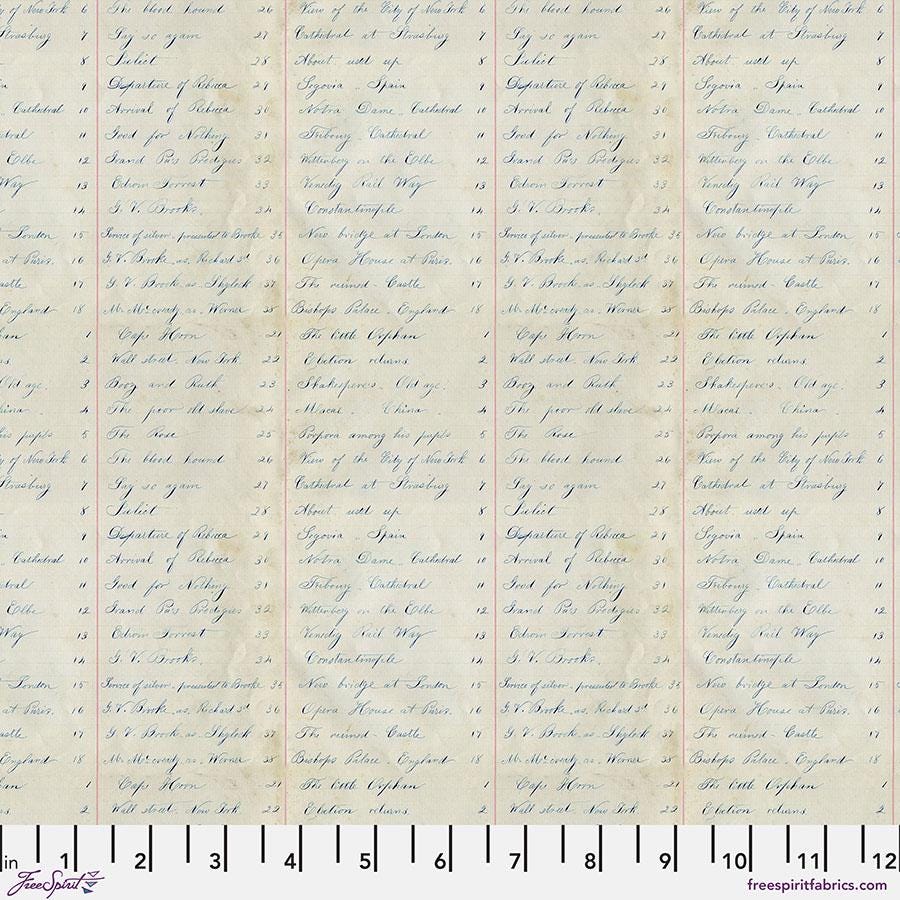 y of New York 6
Strasburg 7
8
9
Cathedral 10
dral 11
Elbe 12
Way 13
14
London 15
at Paris. 16
astle 17
England 18
an 1
s. 2
Old age. 3
hina. 4
his pupils 5
y of New York 6
Strasburg 7
8
9
Cathedral 10
dral 11
Elbe 12
Way 13
14
London 15
at Paris. 16
astle 17
England 18
an 1
s. 2
The blood hound 26
Say so again 27
Juliet 28
Departure of Rebecca 29
Arrival of Rebecca 30
Good for Nothing 31
Grand Pa's Prodigies 32
Edwin Forrest 33
G. V. Brooke. 34
Service of silver. presented to Brooke 35
G. V. Brooke. as. Richard 3d 36
G. V. Brooke as. Shylock 37
Mr. McCready as. Werner 38
Cape Horn 21
Wall street. New York 22
Booz and Ruth. 23
The poor old slave 24
The Rose 25
The blood hound 26
Say so again 27
Juliet 28
Departure of Rebecca 29
Arrival of Rebecca 30
Good for Nothing 31
Grand Pa's Prodigies 32
Edwin Forrest 33
G. V. Brooke. 34
Service of silver. presented to Brooke 35
G. V. Brooke. as. Richard 3d 36
G. V. Brooke as. Shylock 37
Mr. McCready as. Werner 38
Cape Horn 21
Wall street. New York 22
View of the City of New York 6
Cathedral at Strasburg 7
About used up 8
Segovia . Spain 9
Notra Dame. Cathedral 10
Fribourg. Cathedral 11
Wittenberg on the Elbe 12
Venedig Rail Way 13
Constantinople 14
New bridge at London 15
Opera House at Paris. 16
The ruined Castle 17
Bishops Palace. England 18
The little Orphan 1
Election returns. 2
Shakespere's. Old age. 3
Macao. China. 4
Porpora among his pupils 5
View of the City of New York 6
Cathedral at Strasburg 7
About used up 8
Segovia . Spain 9
Notra Dame. Cathedral 10
Fribourg. Cathedral 11
Wittenberg on the Elbe 12
Venedig Rail Way 13
Constantinople 14
New bridge at London 15
Opera House at Paris. 16
The ruined Castle 17
Bishops Palace. England 18
The little Orphan 1
Election returns. 2
The blood hound 26
Say so again 27
Juliet 28
Departure of Rebecca 29
Arrival of Rebecca 30
Good for Nothing 31
Grand Pa's Prodigies 32
Edwin Forrest 33
G. V. Brooke. 34
Service of silver. presented to Brooke 35
G. V. Brooke. as. Richard 3d 36
G. V. Brooke as. Shylock 37
Mr. McCready as. Werner 38
Cape Horn 21
Wall street. New York 22
Booz and Ruth. 23
The poor old slave 24
The Rose 25
The blood hound 26
Say so again 27
Juliet 28
Departure of Rebecca 29
Arrival of Rebecca 30
Good for Nothing 31
Grand Pa's Prodigies 32
Edwin Forrest 33
G. V. Brooke. 34
Service of silver. presented to Brooke 35
G. V. Brooke. as. Richard 3d 36
G. V. Brooke as. Shylock 37
Mr. McCready as. Werner 38
Cape Horn 21
Wall street. New York 22
View of the City of New York 6
Cathedral at Strasburg 7
About used up 8
Segovia . Spain 9
Notra Dame. Cathedral 10
Fribourg. Cathedral 11
Wittenberg on the Elbe 12
Venedig Rail Way 13
Constantinople 14
New bridge at London 15
Opera House at Paris. 16
The ruined Castle 17
Bishops Palace. England 18
The little Orphan 1
Election returns. 2
Shakespere's. Old age. 3
Macao. China. 4
Porpora among his pupils 5
View of the City of New York 6
Cathedral at Strasburg 7
About used up 8
Segovia . Spain 9
Notra Dame. Cathedral 10
Fribourg. Cathedral 11
Wittenberg on the Elbe 12
Venedig Rail Way 13
Constantinople 14
New bridge at London 15
Opera House at Paris. 16
The ruined Castle 17
Bishops Palace. England 18
The little Orphan 1
Election returns. 2
in 1 2 3 4 5 6 7 8 9 10 11 12
FreeSpirit
freespiritfabrics.com